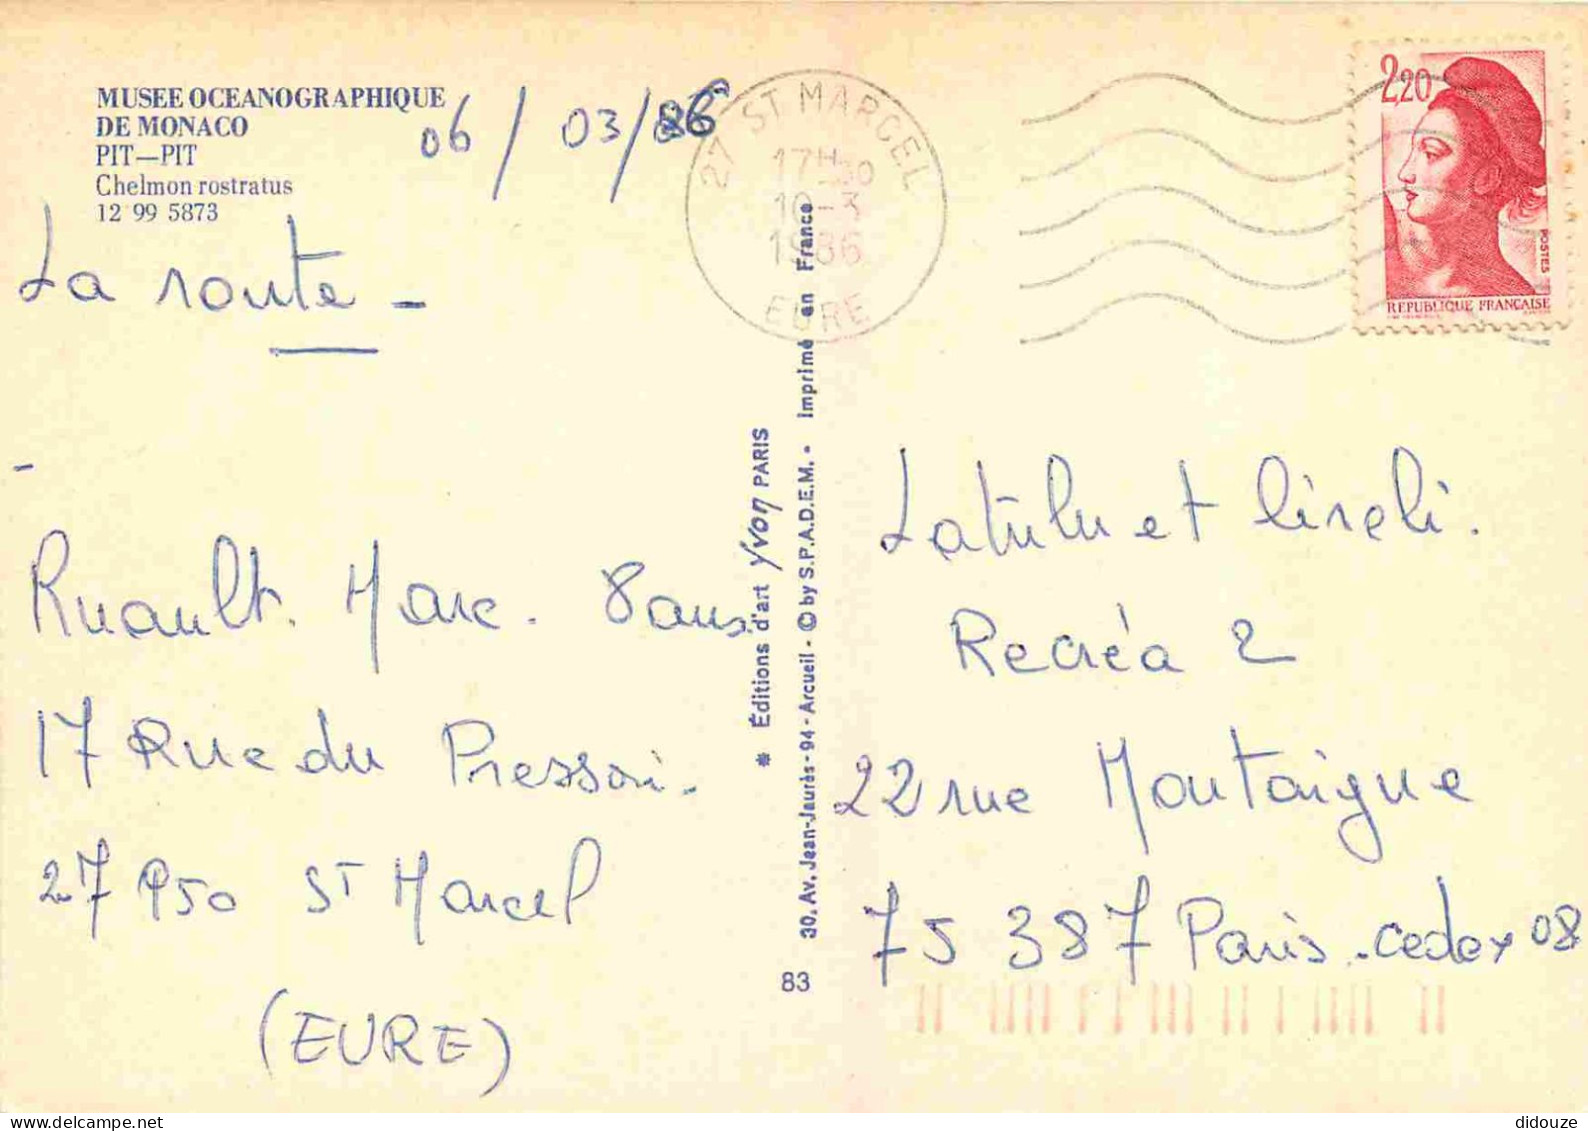 MUSEE OCEANOGRAPHIQUE
DE MONACO
PIT—PIT
Chelmon rostratus
12 99 5873
06 / 03 / 86
La route -
-
Ruault. Marc. 8 ans.
17 Rue du Pressoi.
27 950 ST Marcel
(EURE)
27 ST MARCEL
17H30
10-3
1986
EURE
2,20
POSTES
REPUBLIQUE FRANÇAISE
* Éditions d'art Yvon PARIS
30, Av. Jean-Jaurès - 94 - Arcueil - © by S.P.A.D.E.M. - Imprimé en France
83
Latulu et lireli.
Recréa 2
22 rue Montaigne
75 387 Paris. cedex 08
didouze